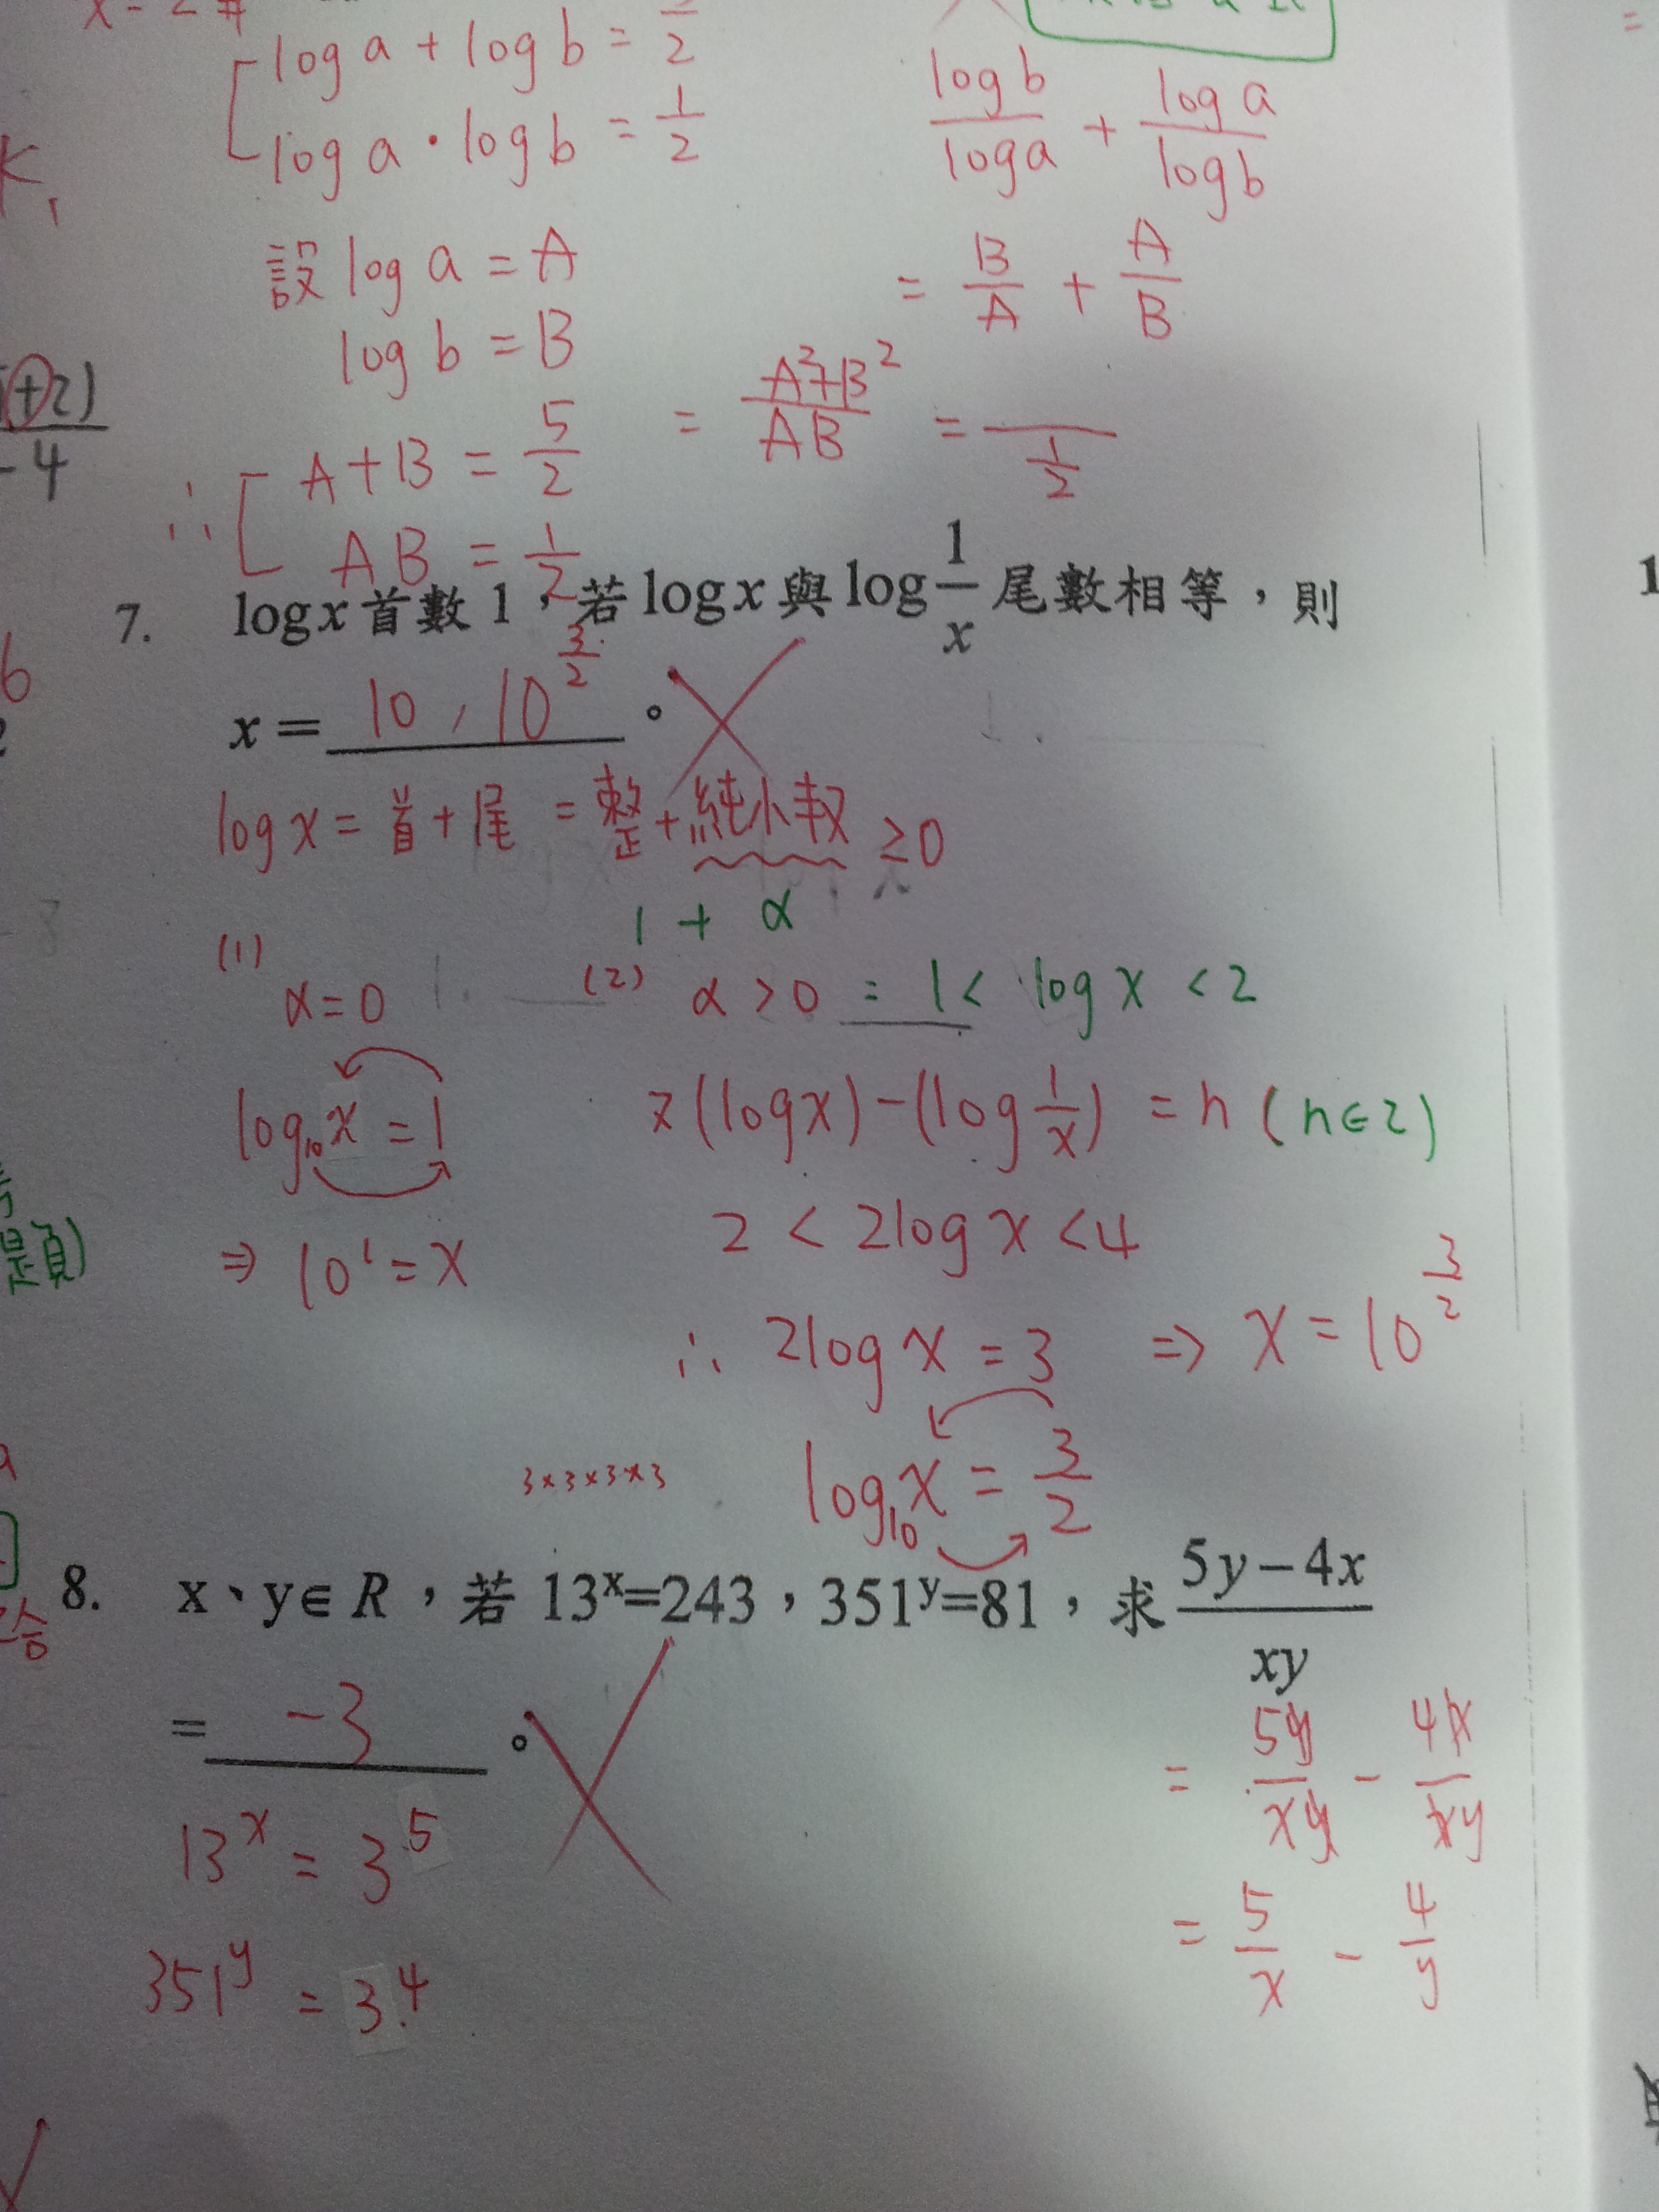 x = 2 #
log a + log b = 5/2
log a · log b = 1/2
log b/log a + log a/log b
設 log a = A
log b = B
= B/A + A/B
∴ A + B = 5/2
AB = 1/2
= A²+B²/AB = /(1/2)
(+2)/-4
7. log x 首數 1，若 log x 與 log 1/x 尾數相等，則
x = 10, 10^(3/2)。
log x = 首 + 尾 = 整 + 純小數 ≥ 0
1 + α
(1) α = 0
(2) α > 0 = 1 < log x < 2
log₁₀x = 1
(log x) - (log 1/x) = n (n∈Z)
⇒ 10¹ = x
2 < 2log x < 4
∴ 2log x = 3 ⇒ x = 10^(3/2)
log₁₀x = 3/2
3×3×3×3
8. x、y∈R，若 13ˣ=243，351ʸ=81，求 5y-4x/xy
= -3。
= 5y/xy - 4x/xy
13ˣ = 3⁵
= 5/x - 4/y
351ʸ = 3⁴
是負)